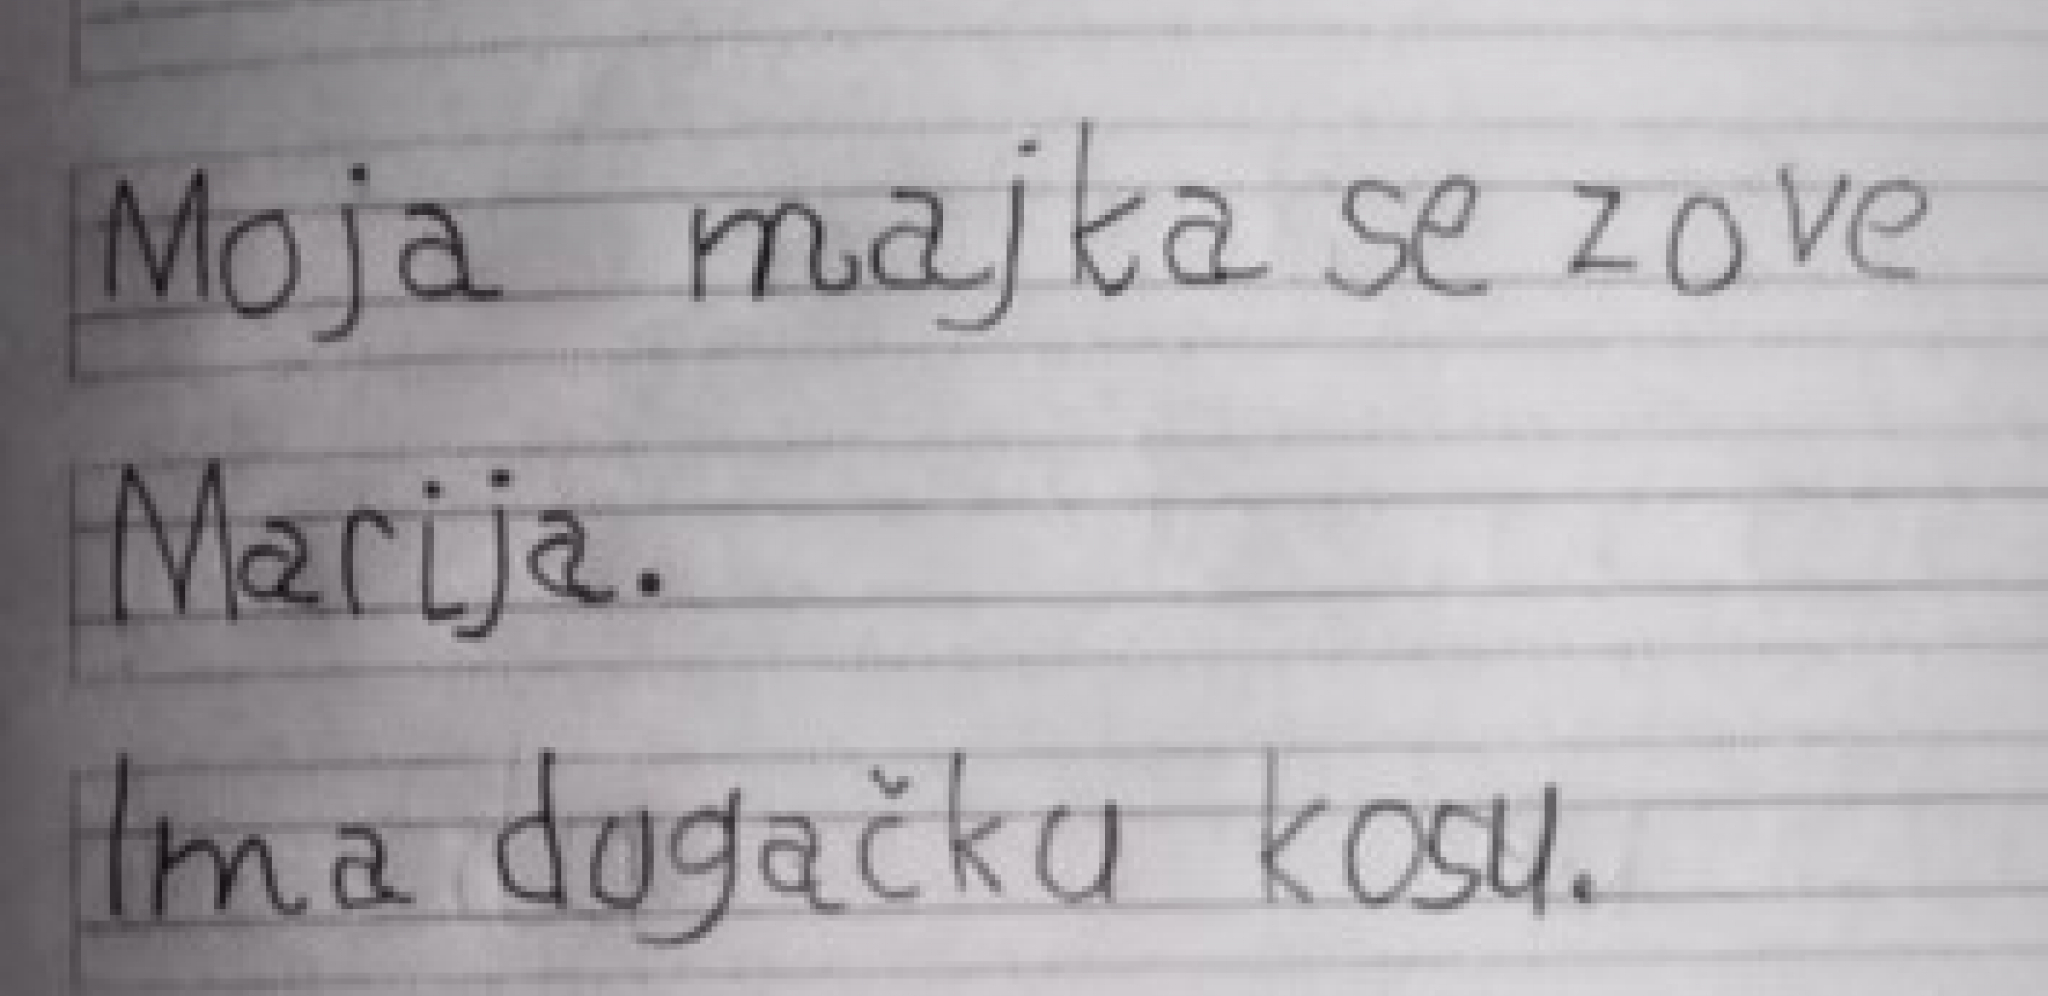 Moja majka se zove
Marija.
Ima dugačku kosu.